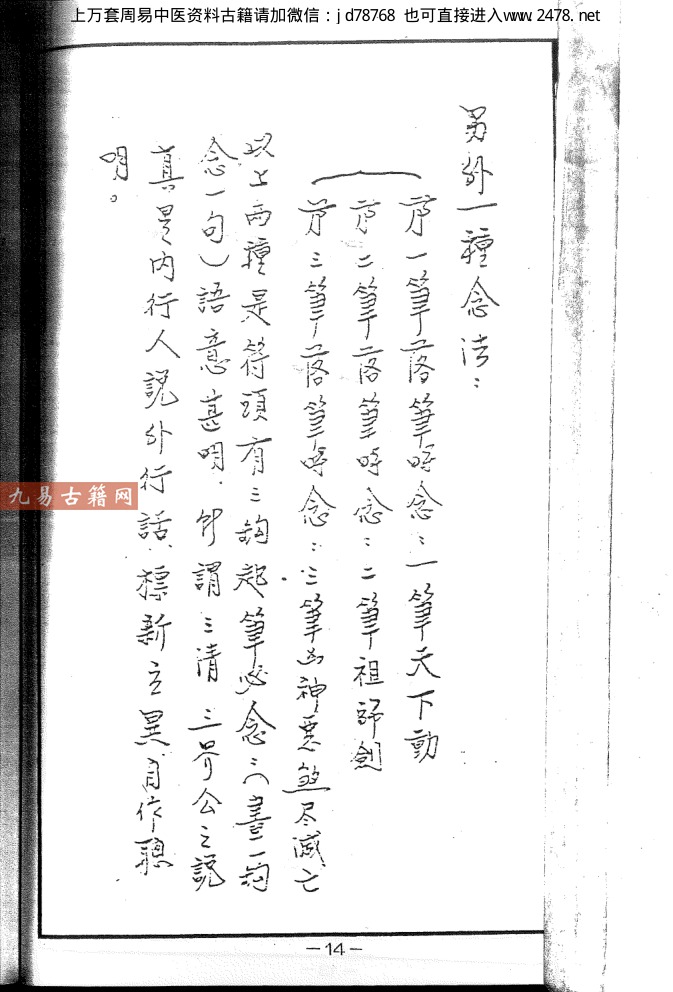 上万套周易中医资料古籍请加微信：jd78768 也可直接进入www.2478.net
另外一種念法：
序一筆落筆時念：一筆天下動
序二筆落筆時念：二筆祖師劍
序三筆落筆時念：三筆凶神惡煞尽滅亡
以上两種是符頭有三鈎起筆必念：（畫一鈎
念一句）語意甚明，所謂三清三界公之説
真是内行人説外行話，標新立異，自作聰
明。
九易古籍网
－14－